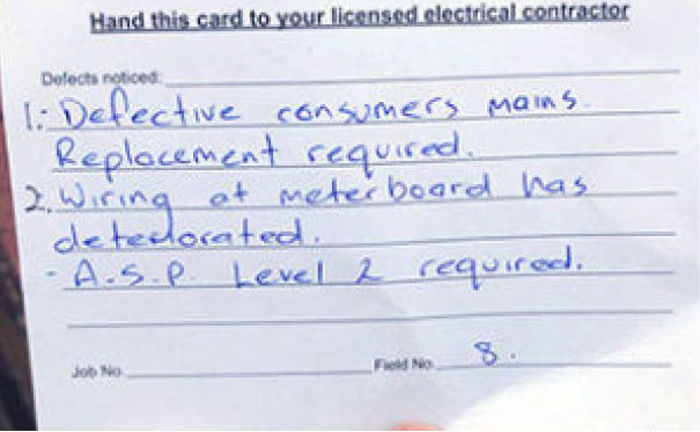 Hand this card to your licensed electrical contractor
Defects noticed:
1:- Defective consumers mains.
Replacement required.
2. Wiring at meter board has
deteriorated.
- A.S.P. Level 2 required.
Job No.
Field No. 8.